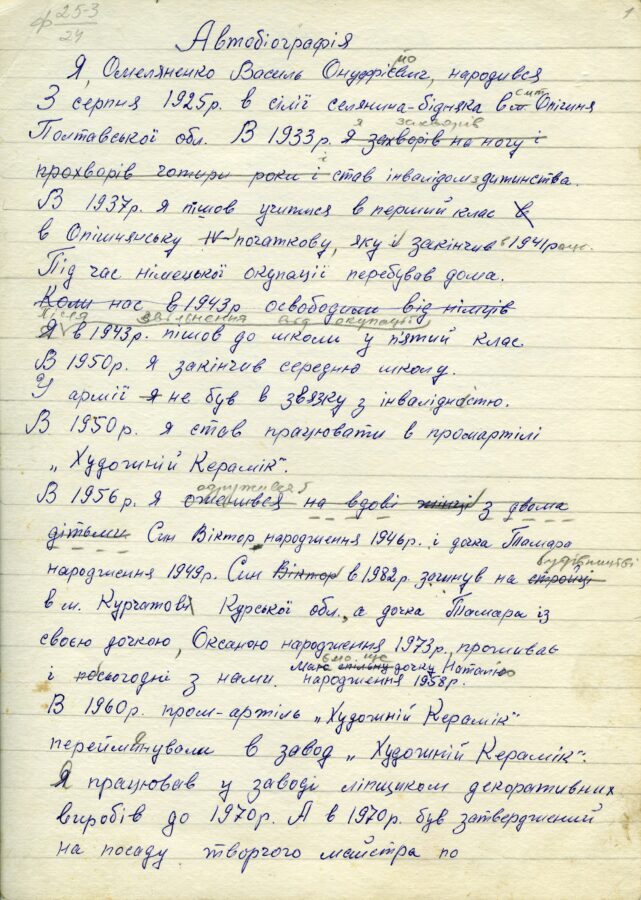 ф 25-3
24
1
Автобіографія
йо
Я, Омеляненко Василь Онуфрієвич, народився
смт
3 серпня 1925р. в сілії селянина-бідняка в м. Опішня
я захворів
Полтавської обл. В 1933р. я захворів на ногу і
і
прохворів чотири роки і став інвалідом з дитинства.
В 1937р. я пішов учитися в перший клас в
в Опішнянську IV початкову, яку й закінчив в 1941 році.
Під час німецької окупації перебував дома.
Коли нас в 1943р освободили від німців
Після звільнення від окупації
Я в 1943р. пішов до школи у п'ятий клас
В 1950р. я закінчив середню школу.
У армії я не був в звязку з інвалідністю.
В 1950р. я став працювати в промартілі
„Художній Керамік".
одружився
В 1956р. я оженився на вдові жінці з двома
дітьми Син Віктор народження 1946р. і дочка Тамара
будівництві
народження 1949р. Син Віктор в 1982р. загинув на стройці
в м. Курчатові Курської обл., а дочка Тамара із
своєю дочкою, Оксаною народження 1973р., проживає
ємо ще
Має спільну дочку Наталію
і по сьогодні з нами. народження 1958р.
В 1960р. пром-артіль „Художній Керамік"
перейминували в завод „Художній Керамік".
Я працював у заводі ліпщиком декоративних
виробів до 1970р. А в 1970р. був затверджений
на посаду творчого майстра по